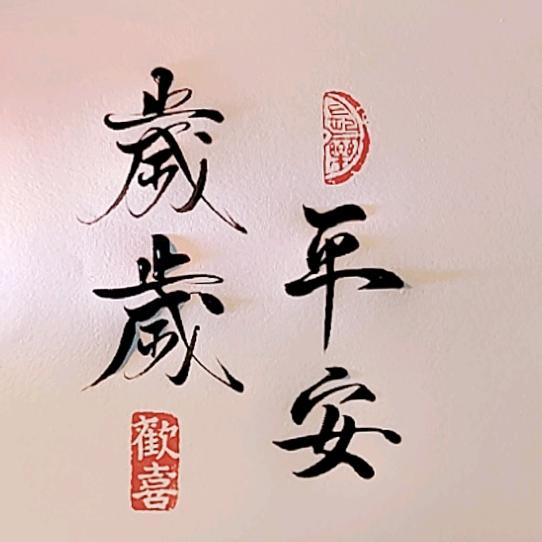 平安
歲歲
歡喜